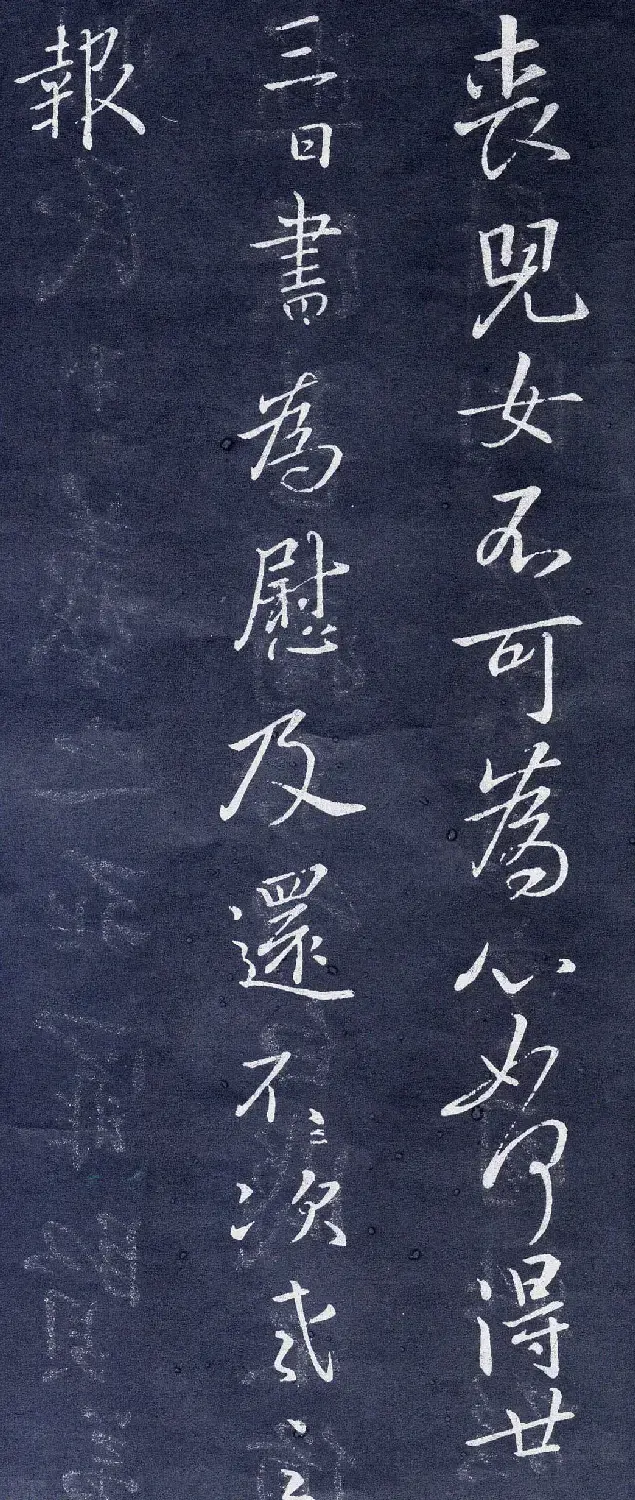 喪兒女不可為心如何得廿
三日書為慰及還不次
報